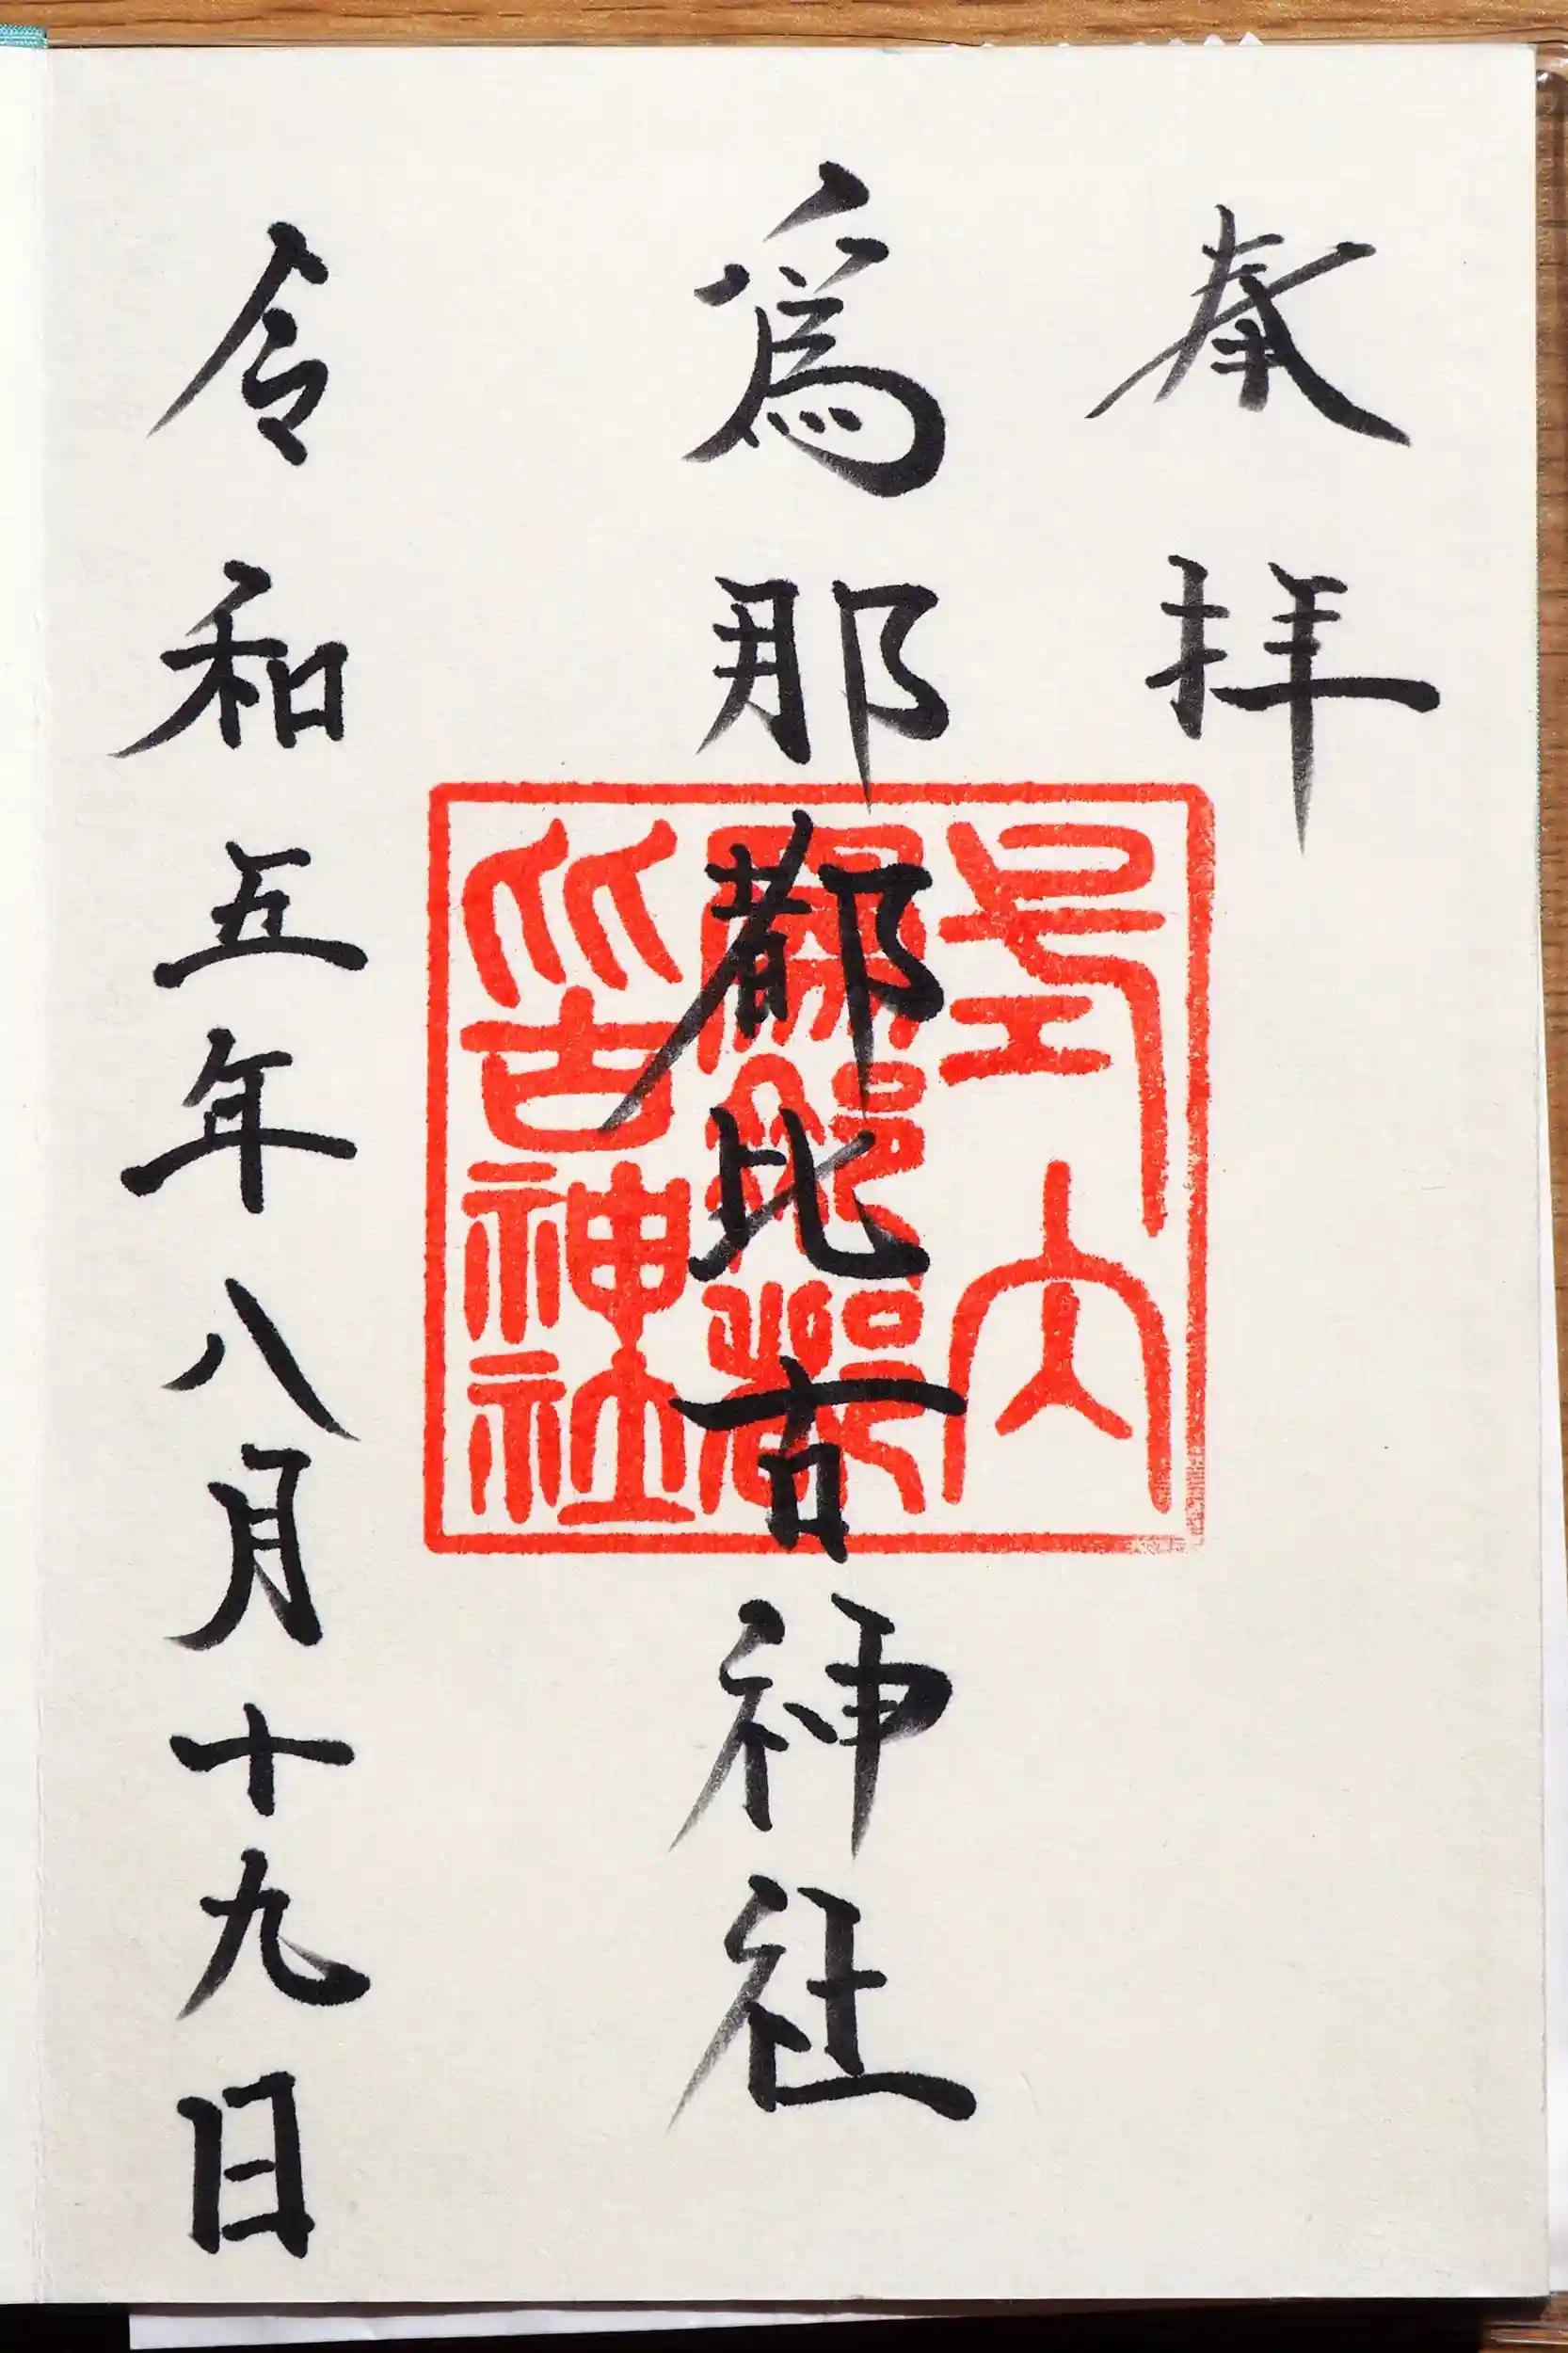 奉拝
爲那都比古神社
令和五年八月十九日
式内
爲那都
比古神社